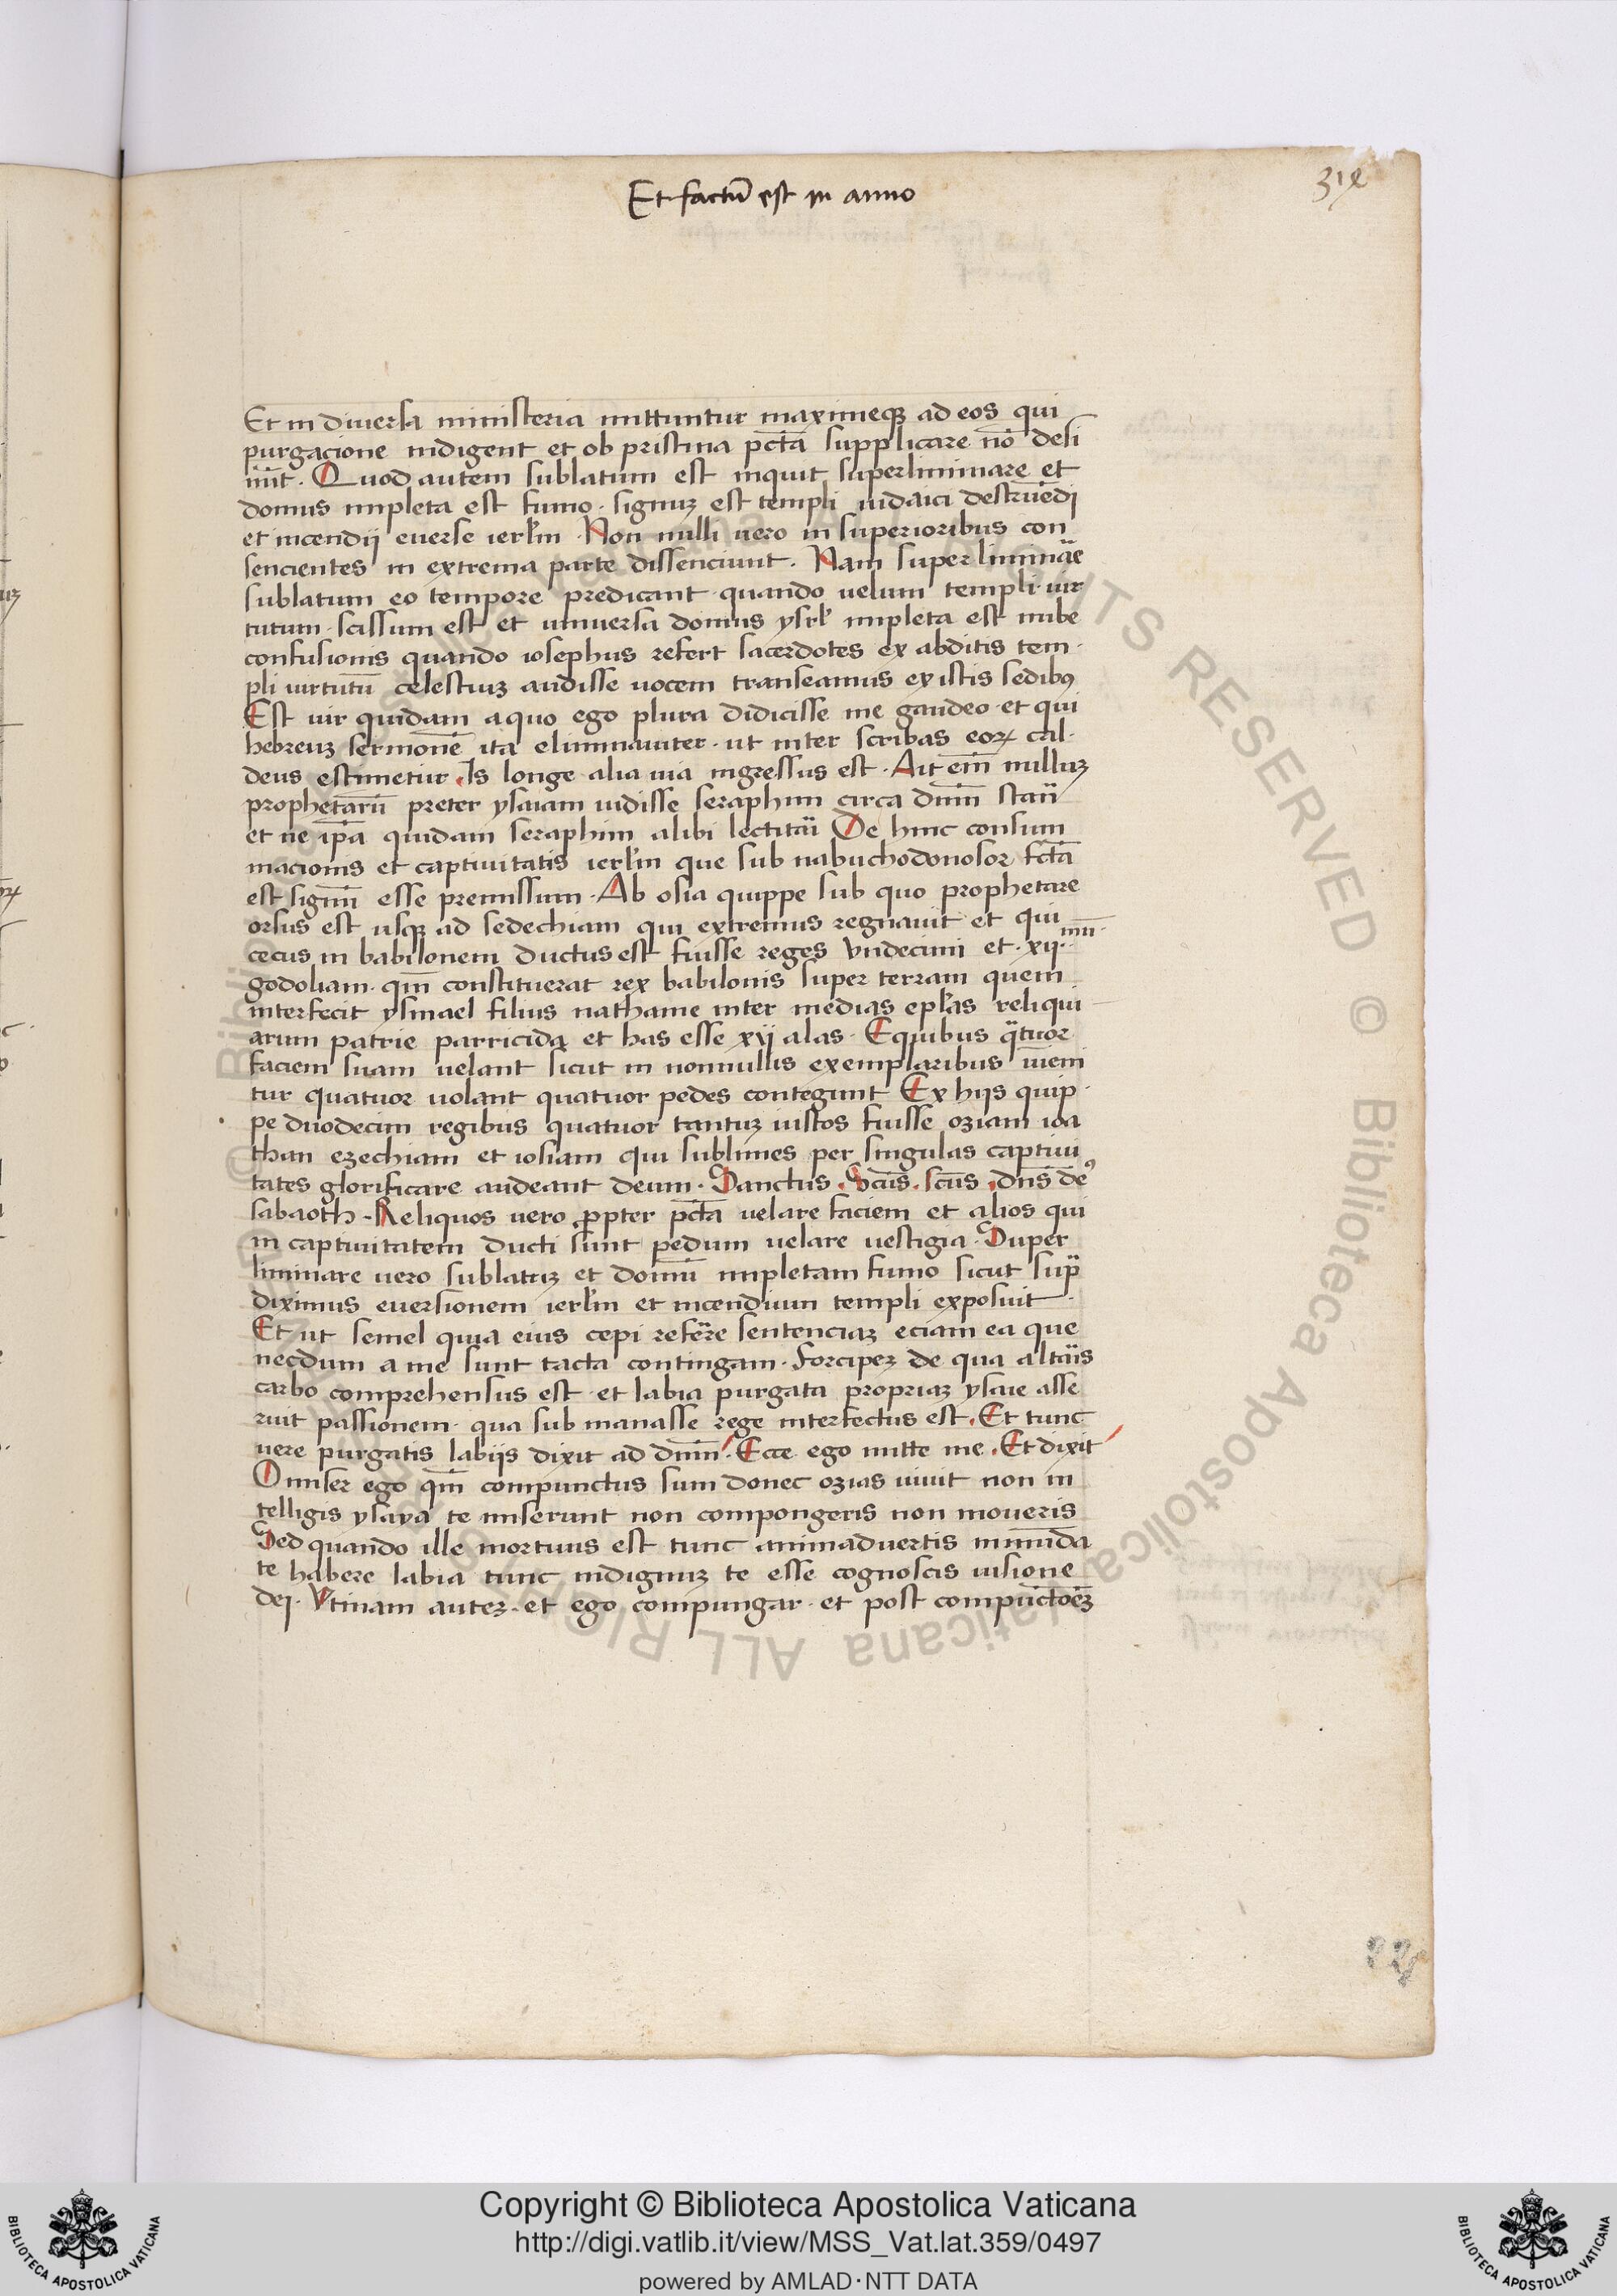 Et factū est in anno
31e
Et in diuersa ministeria mittuntur maximeqꝫ ad eos qui
purgacione indigent et ob pristina pctā supplicare nō desi
nūt. Quod autem sublatum est inquit superliminare et
domus impleta est fumo. signuꝫ est templi iudaici destruēdi
et incendij euerse ierlm. Non nulli uero in superioribus con
sencientes in extrema parte dissenciunt. Nam super liminäe
sublatum eo tempore predicant quando uelum templi uir
tutum scissum est et uniuersa domus ysrl impleta est nube
confusionis quando iosephus refert sacerdotes ex abditis tem
pli uirtutū celestiuꝫ audisse uocem transeamus ex istis sedibꝰ
Est uir quidam a quo ego plura didicisse me gaudeo et qui
hebreuꝫ sermonē ita eliminauiter. ut inter scribas eoꝝ cal
deus estimetur. Is longe alia uia ingressus est. Ait em̄ nulluꝫ
prophetarū preter ysaiam uidisse seraphim circa dnm̄ stan̈
et ne ip̄a quidam seraphim alibi lectitäi De hinc consum
macionis et captiuitatis ierlm que sub nabuchodonosor fctā
est signū esse premissum. Ab osia quippe sub quo prophetare
orsus est usqꝫ ad sedechiam qui extremus regnauit et qui
cecus in babilonem ductus est fuisse reges vndecimi et. xij.mū
godoliam. qm̄ constituerat rex babilonis super terram quem
interfecit ysmael filius nathanie inter medias eplas reliqui
arum patrie parricida et has esse xij alas. Equibus q̈tuor
faciem suam uelant sicut in nonnullis exemplaribus iueni
tur quatuor uolant quatuor pedes contegunt Ex hijs quip
pe duodecim regibus quatuor tantuꝫ iustos fuisse oziam ioa
than ezechiam et iosiam qui sublimes per singulas captiui
tates glorificare audeant deum. Sanctus. Scūs. scūs. dn̄s deꝰ
sabaoth. Reliquos uero ꝓpter pctā uelare faciem et alios qui
in captiuitatem ducti sunt pedum uelare vestigia. Super
liminare uero sublatuꝫ et domū impletam fumo sicut sup̈
diximus euersionem ierlm et incendium templi exposuit.
Et ut semel quia eius cepi referre sentenciaꝫ eciam ea que
necdum a me sunt tacta contingam. Forcipeꝫ de qua altäis
carbo comprehensus est et labia purgata propriaꝫ ysaie asse
ruit passionem. qua sub manasse rege interfectus est. Et tunc
uere purgatis labijs dixit ad dnm̄. Ecce ego mitte me. Et dixit
O miser ego qm̄ compunctus sum donec ozias uiuit non in
telligis ysaya te miserunt non compongeris non moueris
Sed quando ille mortuus est tunc animaduertis inmūda
te habere labia tunc indignuꝫ te esse cognoscis uisione
dei. Vtinam auteꝫ. et ego compungar. et post compūctōeꝫ
© Biblioteca Apostolica Vaticana ALL RIGHTS RESERVED
Copyright © Biblioteca Apostolica Vaticana
http://digi.vatlib.it/view/MSS_Vat.lat.359/0497
powered by AMLAD·NTT DATA
BIBLIOTECA APOSTOLICA VATICANA
BIBLIOTECA APOSTOLICA VATICANA